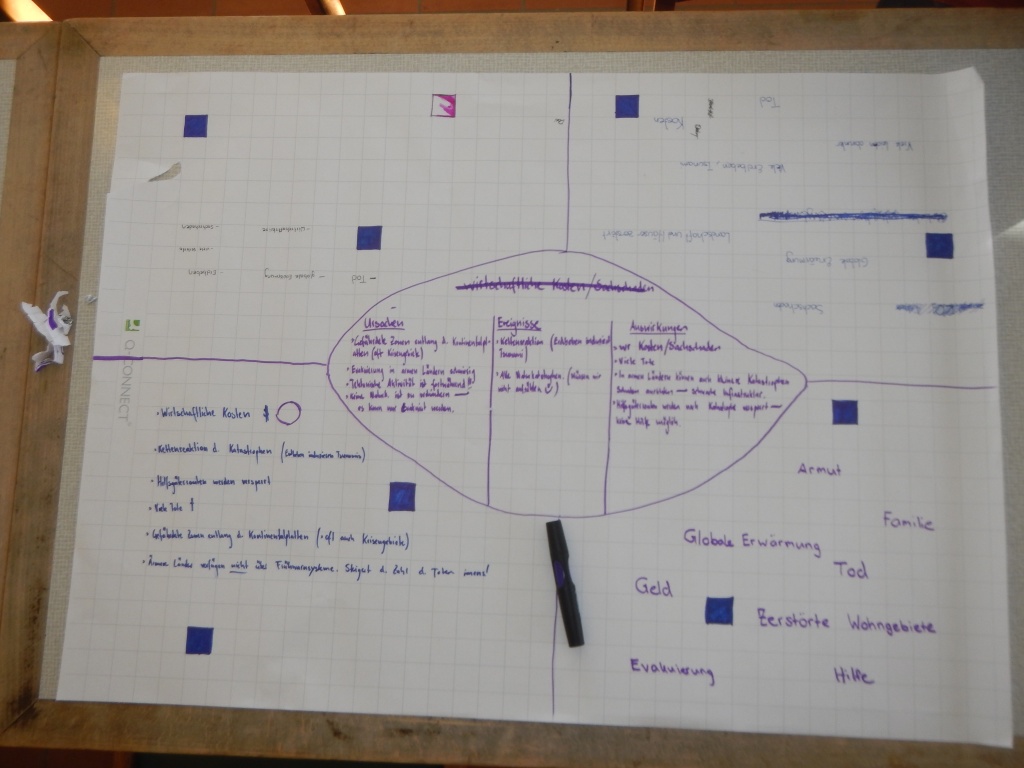 Tod
Kosten
Viele Erdbeben, Tsunami
Landschaft und Häuser zerstört
Globale Erwärmung
Sachschäden
- Tod
- globale Erwärmung
- Erdbeben
wirtschaftliche Kosten/Sachschäden
Ursachen
• Gefährdete Zonen entlang d. Kontinentalpl-
atten (oft Krisengebiete)
• Evakuierung in armen Ländern schwierig
• Tektonische Aktivität ist fortwährend
• Keine Naturk. ist zu verhindern —
es kann nur
werden.
Ereignisse
• Kettenreaktion (Erdbeben induziert
Tsunami)
• Alle Naturkatastrophen. (Müssen wir
nicht aufzählen)
Auswirkungen
• wir. Kosten/Sachschäden
• Viele Tote
• In armen Ländern können auch kleinere Katastrophen
Schaden anrichten — schwache Infrastruktur.
• Hilfsgütsrouten werden nach Katastrophe versperrt —
keine Hilfe möglich.
Q-CONNECT
• Wirtschaftliche Kosten $
• Kettenreaktion d. Katastrophen (Erdbeben induzieren Tsunamis)
• Hilfsgütsrouten werden versperrt
• Viele Tote †
• Gefährdete Zonen entlang d. Kontinentalplatten (oft auch Krisengebiete)
• Ärmere Länder verfügen nicht über Frühwarnsysteme. Steigert d. Zahl d. Toten imens!
Armut
Familie
Globale Erwärmung
Tod
Geld
Zerstörte Wohngebiete
Evakuierung
Hilfe